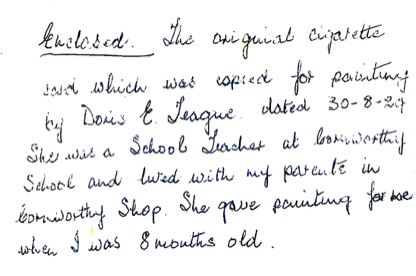 Enclosed. The original cigarette
card which was copied for painting
by Doris E. Teague dated 30-8-29
She was a School Teacher at Cornworthy
School and lived with my parents in
Cornworthy Shop. She gave painting for me
when I was 8 months old.